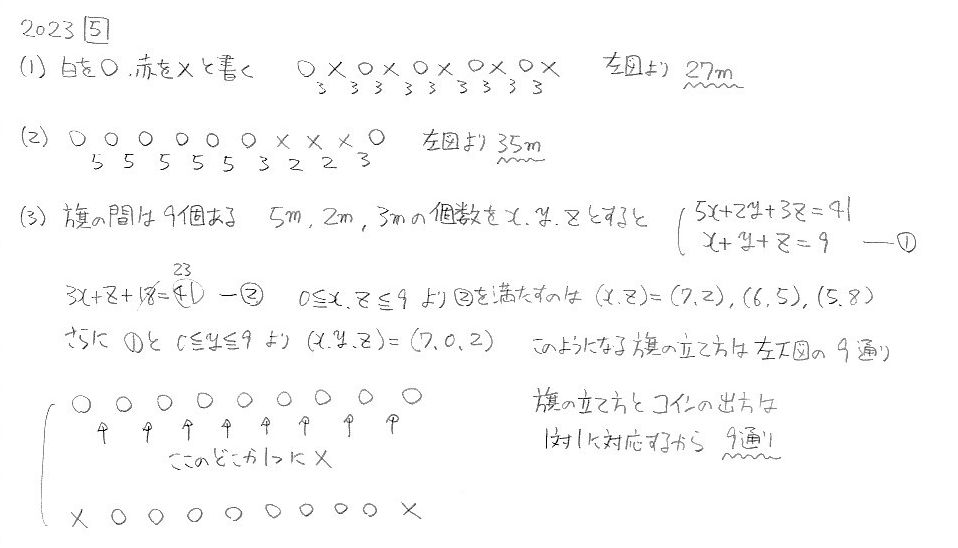 2023 5
(1) 白を○、赤を×と書く ○ × ○ × ○ × ○ × ○ × 左図より 27m
3 3 3 3 3 3 3 3 3
(2) ○ ○ ○ ○ ○ ○ × × × ○ 左図より 35m
5 5 5 5 5 3 2 2 3
(3) 旗の間は9個ある 5m, 2m, 3mの個数をx, y, zとすると 5x+2y+3z=41
x+y+z=9 ―①
23
3x+z+18=41 ―② 0≦x, z≦9 より②を満たすのは (x,z)=(7,2), (6,5), (5,8)
さらに ①と 0≦y≦9 より (x,y,z)=(7,0,2) このようになる旗の立て方は左下図の 9通り
○ ○ ○ ○ ○ ○ ○ ○ ○ 旗の立て方とコインの出方は
↑ ↑ ↑ ↑ ↑ ↑ ↑ ↑ 1対1に対応するから 9通り
ここのどこか1つに ×
× ○ ○ ○ ○ ○ ○ ○ ○ ×